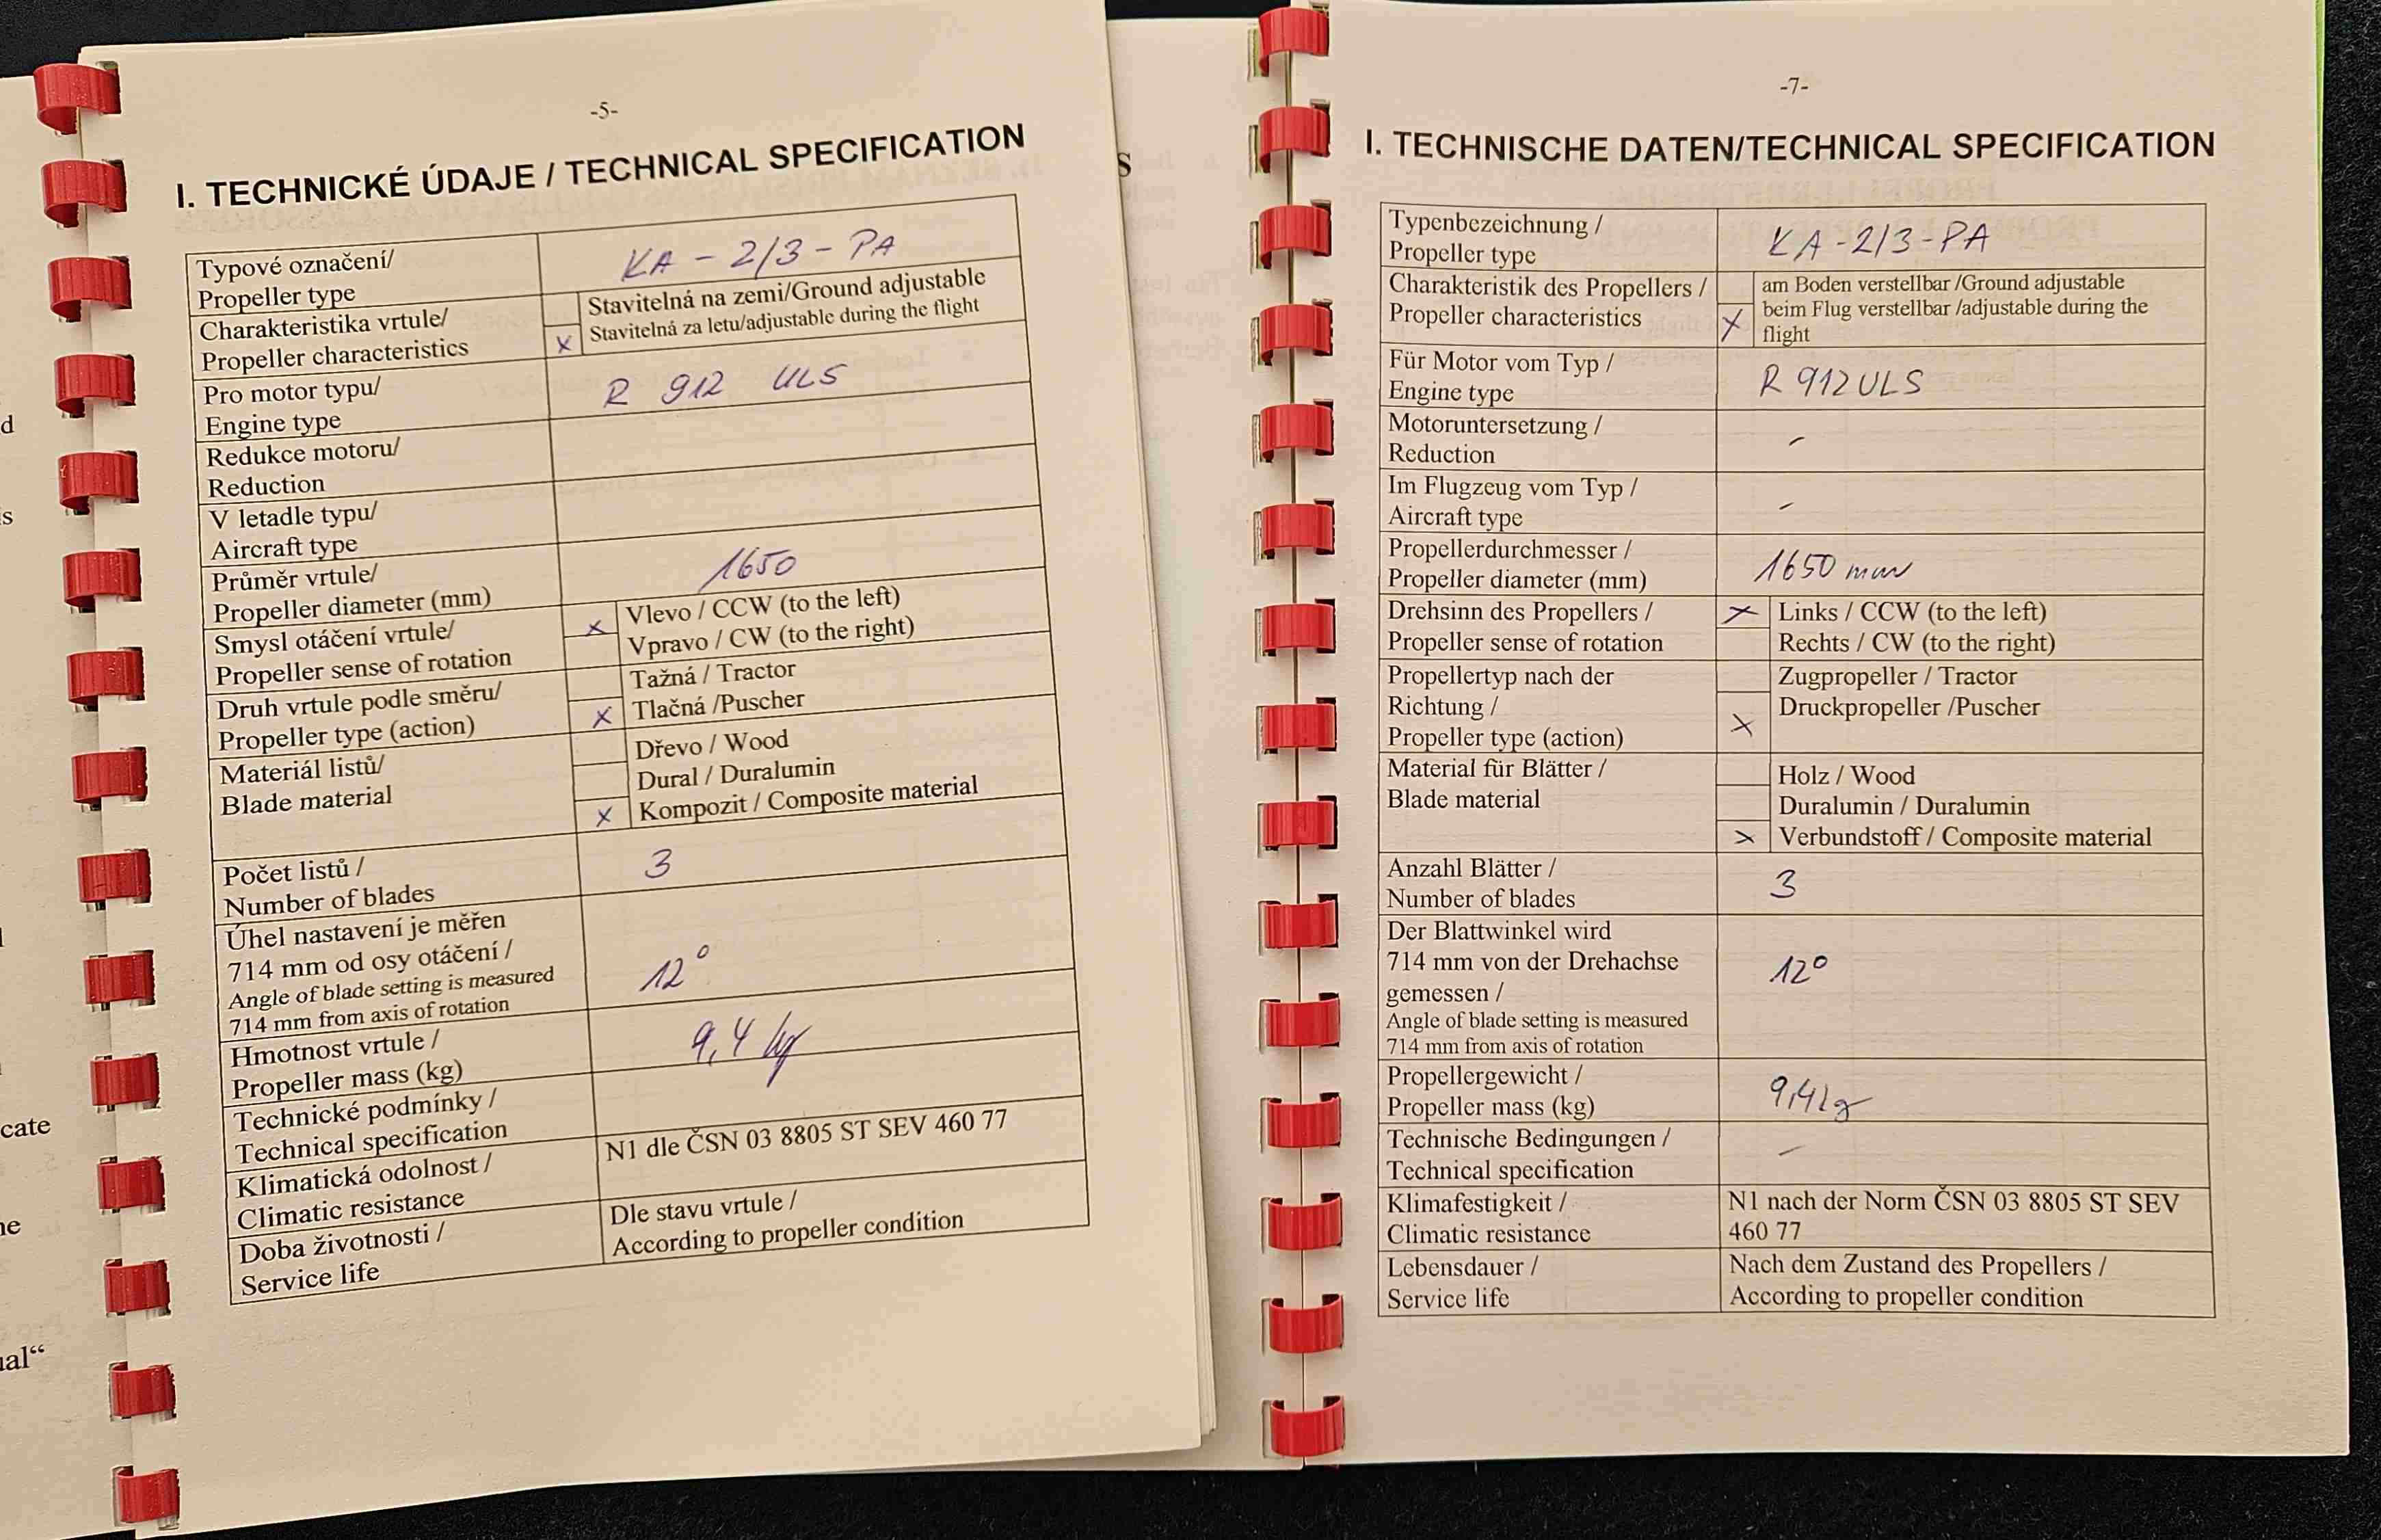 d
is
cate
ne
ual“
-5-
I. TECHNICKÉ ÚDAJE / TECHNICAL SPECIFICATION
Typové označení/
Propeller type
KA - 2/3 - PA
Charakteristika vrtule/
Propeller characteristics
Stavitelná na zemi/Ground adjustable
x Stavitelná za letu/adjustable during the flight
Pro motor typu/
Engine type
R 912 ULS
Redukce motoru/
Reduction
V letadle typu/
Aircraft type
Průměr vrtule/
Propeller diameter (mm)
1650
Smysl otáčení vrtule/
Propeller sense of rotation
x Vlevo / CCW (to the left)
Vpravo / CW (to the right)
Druh vrtule podle směru/
Propeller type (action)
Tažná / Tractor
x Tlačná /Puscher
Materiál listů/
Blade material
Dřevo / Wood
Dural / Duralumin
x Kompozit / Composite material
Počet listů /
Number of blades
3
Úhel nastavení je měřen
714 mm od osy otáčení /
Angle of blade setting is measured
714 mm from axis of rotation
12°
Hmotnost vrtule /
Propeller mass (kg)
9,4 kg
Technické podmínky /
Technical specification
Klimatická odolnost /
Climatic resistance
N1 dle ČSN 03 8805 ST SEV 460 77
Doba životnosti /
Service life
Dle stavu vrtule /
According to propeller condition
S
-7-
I. TECHNISCHE DATEN/TECHNICAL SPECIFICATION
Typenbezeichnung /
Propeller type
KA - 2/3 - PA
Charakteristik des Propellers /
Propeller characteristics
am Boden verstellbar /Ground adjustable
x beim Flug verstellbar /adjustable during the
flight
Für Motor vom Typ /
Engine type
R 912 ULS
Motoruntersetzung /
Reduction
-
Im Flugzeug vom Typ /
Aircraft type
-
Propellerdurchmesser /
Propeller diameter (mm)
1650 mm
Drehsinn des Propellers /
Propeller sense of rotation
x Links / CCW (to the left)
Rechts / CW (to the right)
Propellertyp nach der
Richtung /
Propeller type (action)
Zugpropeller / Tractor
x Druckpropeller /Puscher
Material für Blätter /
Blade material
Holz / Wood
Duralumin / Duralumin
x Verbundstoff / Composite material
Anzahl Blätter /
Number of blades
3
Der Blattwinkel wird
714 mm von der Drehachse
gemessen /
Angle of blade setting is measured
714 mm from axis of rotation
12°
Propellergewicht /
Propeller mass (kg)
9,4 kg
Technische Bedingungen /
Technical specification
-
Klimafestigkeit /
Climatic resistance
N1 nach der Norm ČSN 03 8805 ST SEV
460 77
Lebensdauer /
Service life
Nach dem Zustand des Propellers /
According to propeller condition